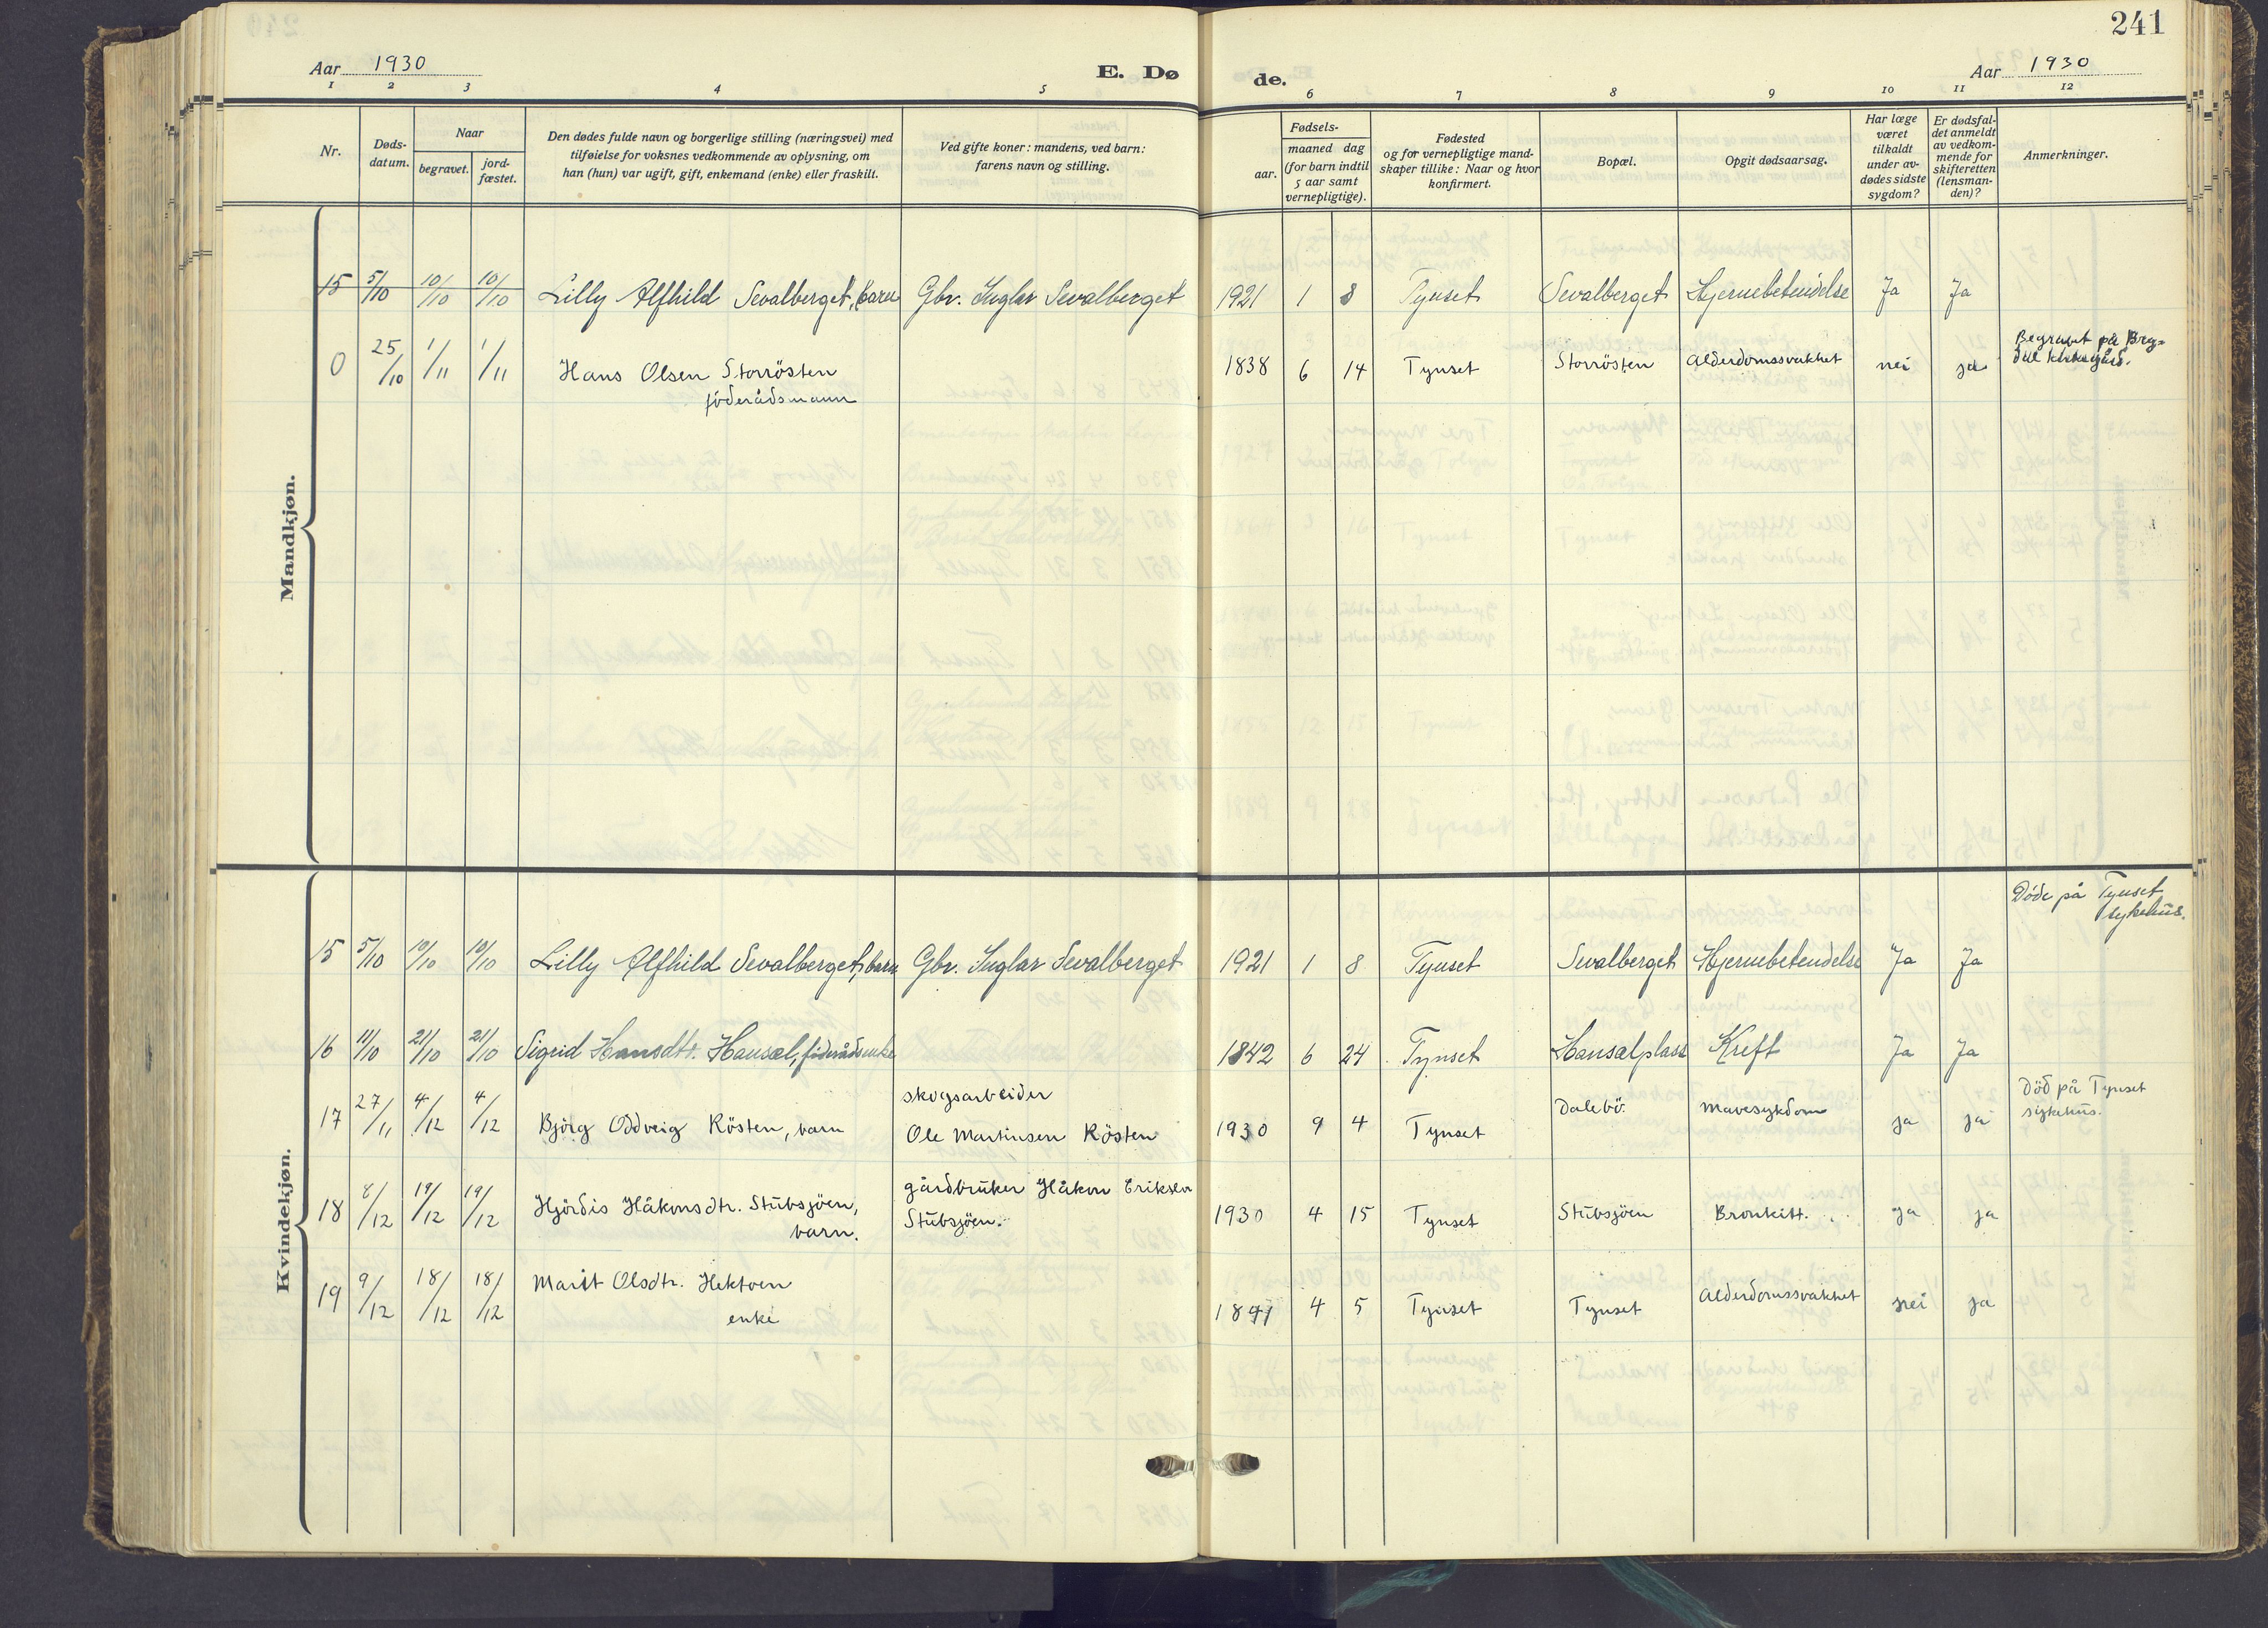 241
Aar 1930
E. Dø
de.
Aar 1930
1 2 3 4 5 6 7 8 9 10 11 12
Nr.
Døds-
datum.
Naar
begravet.
jord-
fæstet.
Den dødes fulde navn og borgerlige stilling (næringsvei) med
tilføielse for voksnes vedkommende av oplysning, om
han (hun) var ugift, gift, enkemand (enke) eller fraskilt.
Ved gifte koner: mandens, ved barn:
farens navn og stilling.
Fødsels-
aar.
maaned dag
(for barn indtil
5 aar samt
vernepligtige).
Fødested
og for vernepligtige mand-
skaper tillike: Naar og hvor
konfirmert.
Bopæl.
Opgit dødsaarsag.
Har læge
været
tilkaldt
under av-
dødes sidste
sygdom?
Er dødsfal-
det anmeldt
av vedkom-
mende for
skifteretten
(lensman-
den)?
Anmerkninger.
Mandkjøn.
15 5/10 10/10 10/10 Lilly Alfhild Sevalberget, barn Gbr. Inglar Sevalberget 1921 1 8 Tynset Sevalberget Hjernebetendelse Ja Ja
0 25/10 1/11 1/11 Hans Olsen Storrösten 1838 6 14 Tynset Storrösten Alderdomssvakhet nei ja Begravet på Bry-
föderådsmann dal kirkegård.
Kvindekjøn.
Döde på Tynset
sykehus.
15 5/10 10/10 10/10 Lilly Alfhild Sevalberget, barn Gbr. Inglar Sevalberget 1921 1 8 Tynset Sevalberget Hjernebetendelse Ja Ja
16 11/10 21/10 21/10 Sigrid Hansdtr. Hansæl, föderådsenke 1842 6 24 Tynset Hansælplass Kreft Ja Ja
skogsarbeider Död på Tynset
17 27/11 4/12 4/12 Björg Oddveig Rösten, barn Ole Martinsen Rösten 1930 9 4 Tynset Dalebö. Mavesykdom ja ja sykehus.
18 8/12 19/12 19/12 Hjördis Håkonsdtr. Stubsjöen, gårdbruker Håkon Eriksen 1930 4 15 Tynset Stubsjöen Bronkitt. ja ja
barn. Stubsjöen.
19 9/12 18/12 18/12 Marit Olsdtr. Hektoen 1841 4 5 Tynset Tynset Alderdomssvakhet nei ja
enke